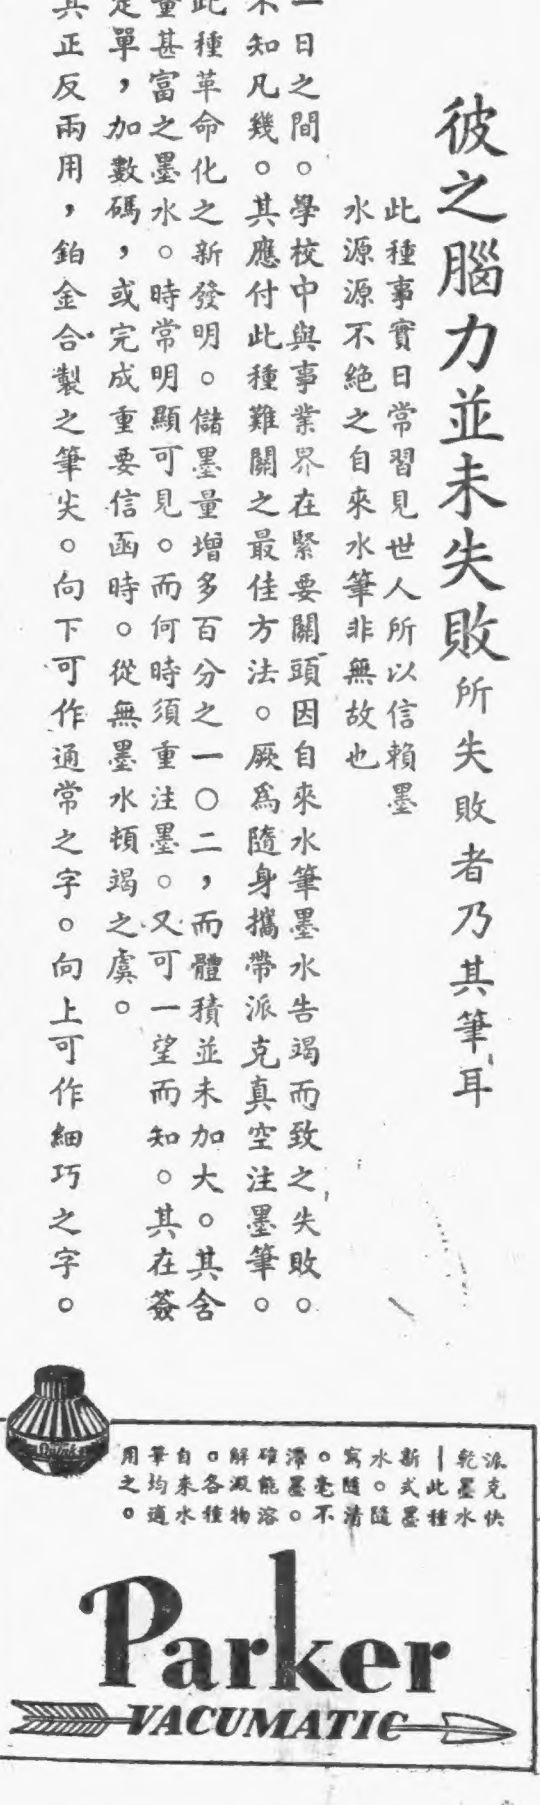 彼之腦力並未失敗所失敗者乃其筆耳
此種事實日常習見世人所以信賴墨
水源源不絕之自來水筆非無故也
一日之間。學校中與事業界在緊要關頭因自來水筆墨水告竭而致之失敗。
不知凡幾。其應付此種難關之最佳方法。厥爲隨身攜帶派克真空注墨筆。
此種革命化之新發明。儲墨量增多百分之一〇二，而體積並未加大。其含
量甚富之墨水。時常明顯可見。而何時須重注墨。又可一望而知。其在簽
定單，加數碼，或完成重要信函時。從無墨水頓竭之虞。
其正反兩用，鉑金合製之筆尖。向下可作通常之字。向上可作細巧之字。
派克快
乾墨水
｜此種
新式墨
水。隨
寫隨清
。毫不
滯墨。
確能溶
解澱物
。各種
自來水
筆均適
用之。
Quink
Parker
VACUMATIC